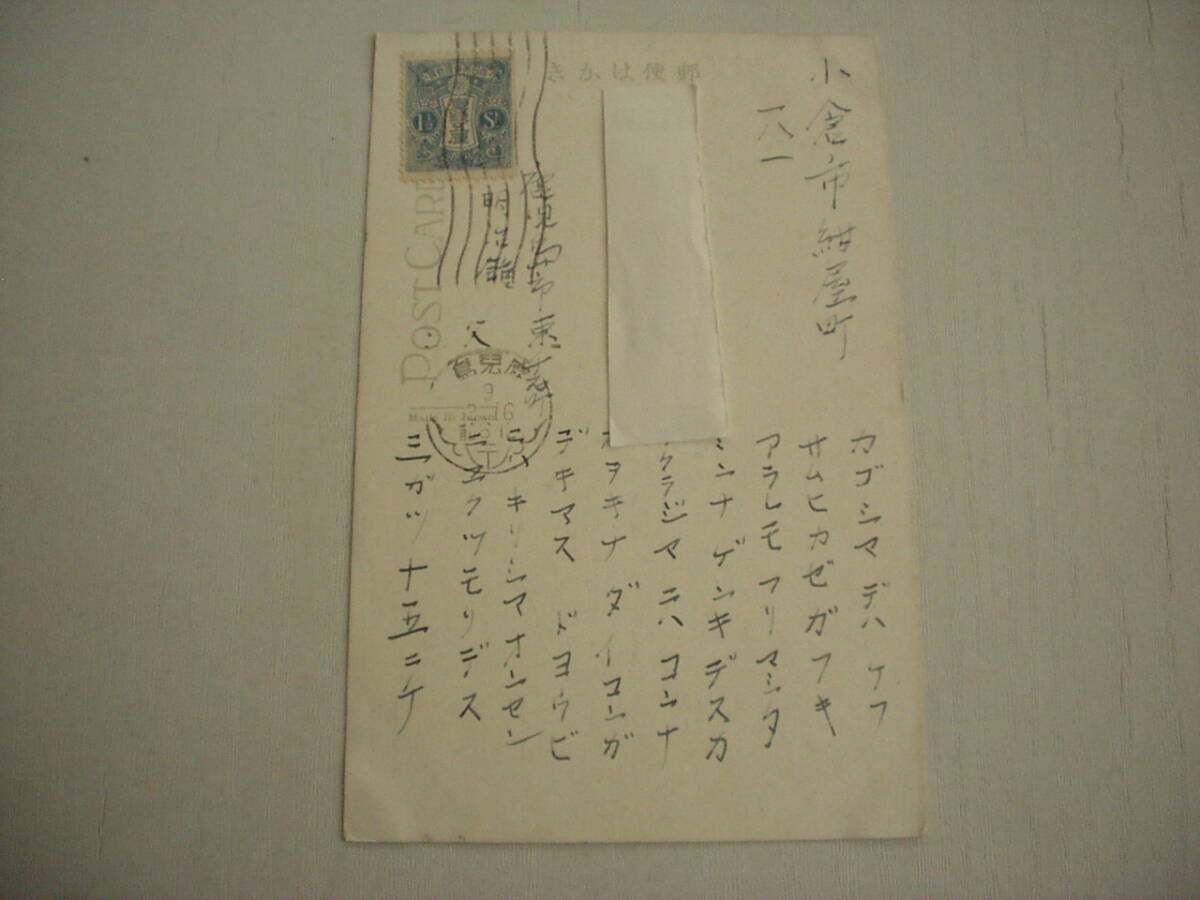 郵便はかき
小倉市紺屋町
一八一
鹿児島市東
明治舘
父
POST CARD
1½ Sn
鹿兒島
9
カゴシマデハ ケフ
サムヒカゼガフキ
アラレモフリマシタ
ミンナ ゲンキデスカ
クラジマニハコンナ
オヲキナ ダイコンガ
デキマス ドヨウビ
ニハ キリシマオンセン
ニユクツモリデス
三ガツ十五ニチ